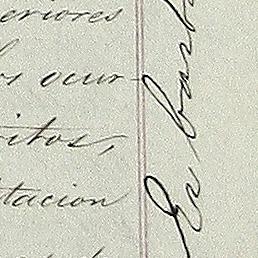 eriores
os ocur-
ritos,
tacion
En barb